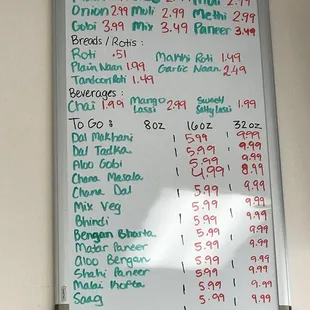 Onion 2.99 Muli 2.99 Methi 2.99
Gobi 3.99 Mix 3.49 Paneer 3.49
Breads / Rotis :
Roti .51 Makki Roti 1.49
Plain Naan 1.99 Garlic Naan 2.49
Tandoori Roti 1.49
Beverages :
Chai 1.99 Mango Lassi 2.99 Sweet/ Salty Lassi 1.99
To Go : 8oz 16oz 32oz
Dal Makhani 5.99 9.99
Dal Tadka 5.99 9.99
Aloo Gobi 5.99 9.99
Chana Masala 4.99 8.99
Chana Dal 5.99 9.99
Mix Veg 5.99 9.99
Bhindi 5.99 9.99
Bengan Bharta 5.99 9.99
Matar Paneer 5.99 9.99
Aloo Bengan 5.99 9.99
Shahi Paneer 5.99 9.99
Malai Kofta 5.99 9.99
Saag 5.99 9.99